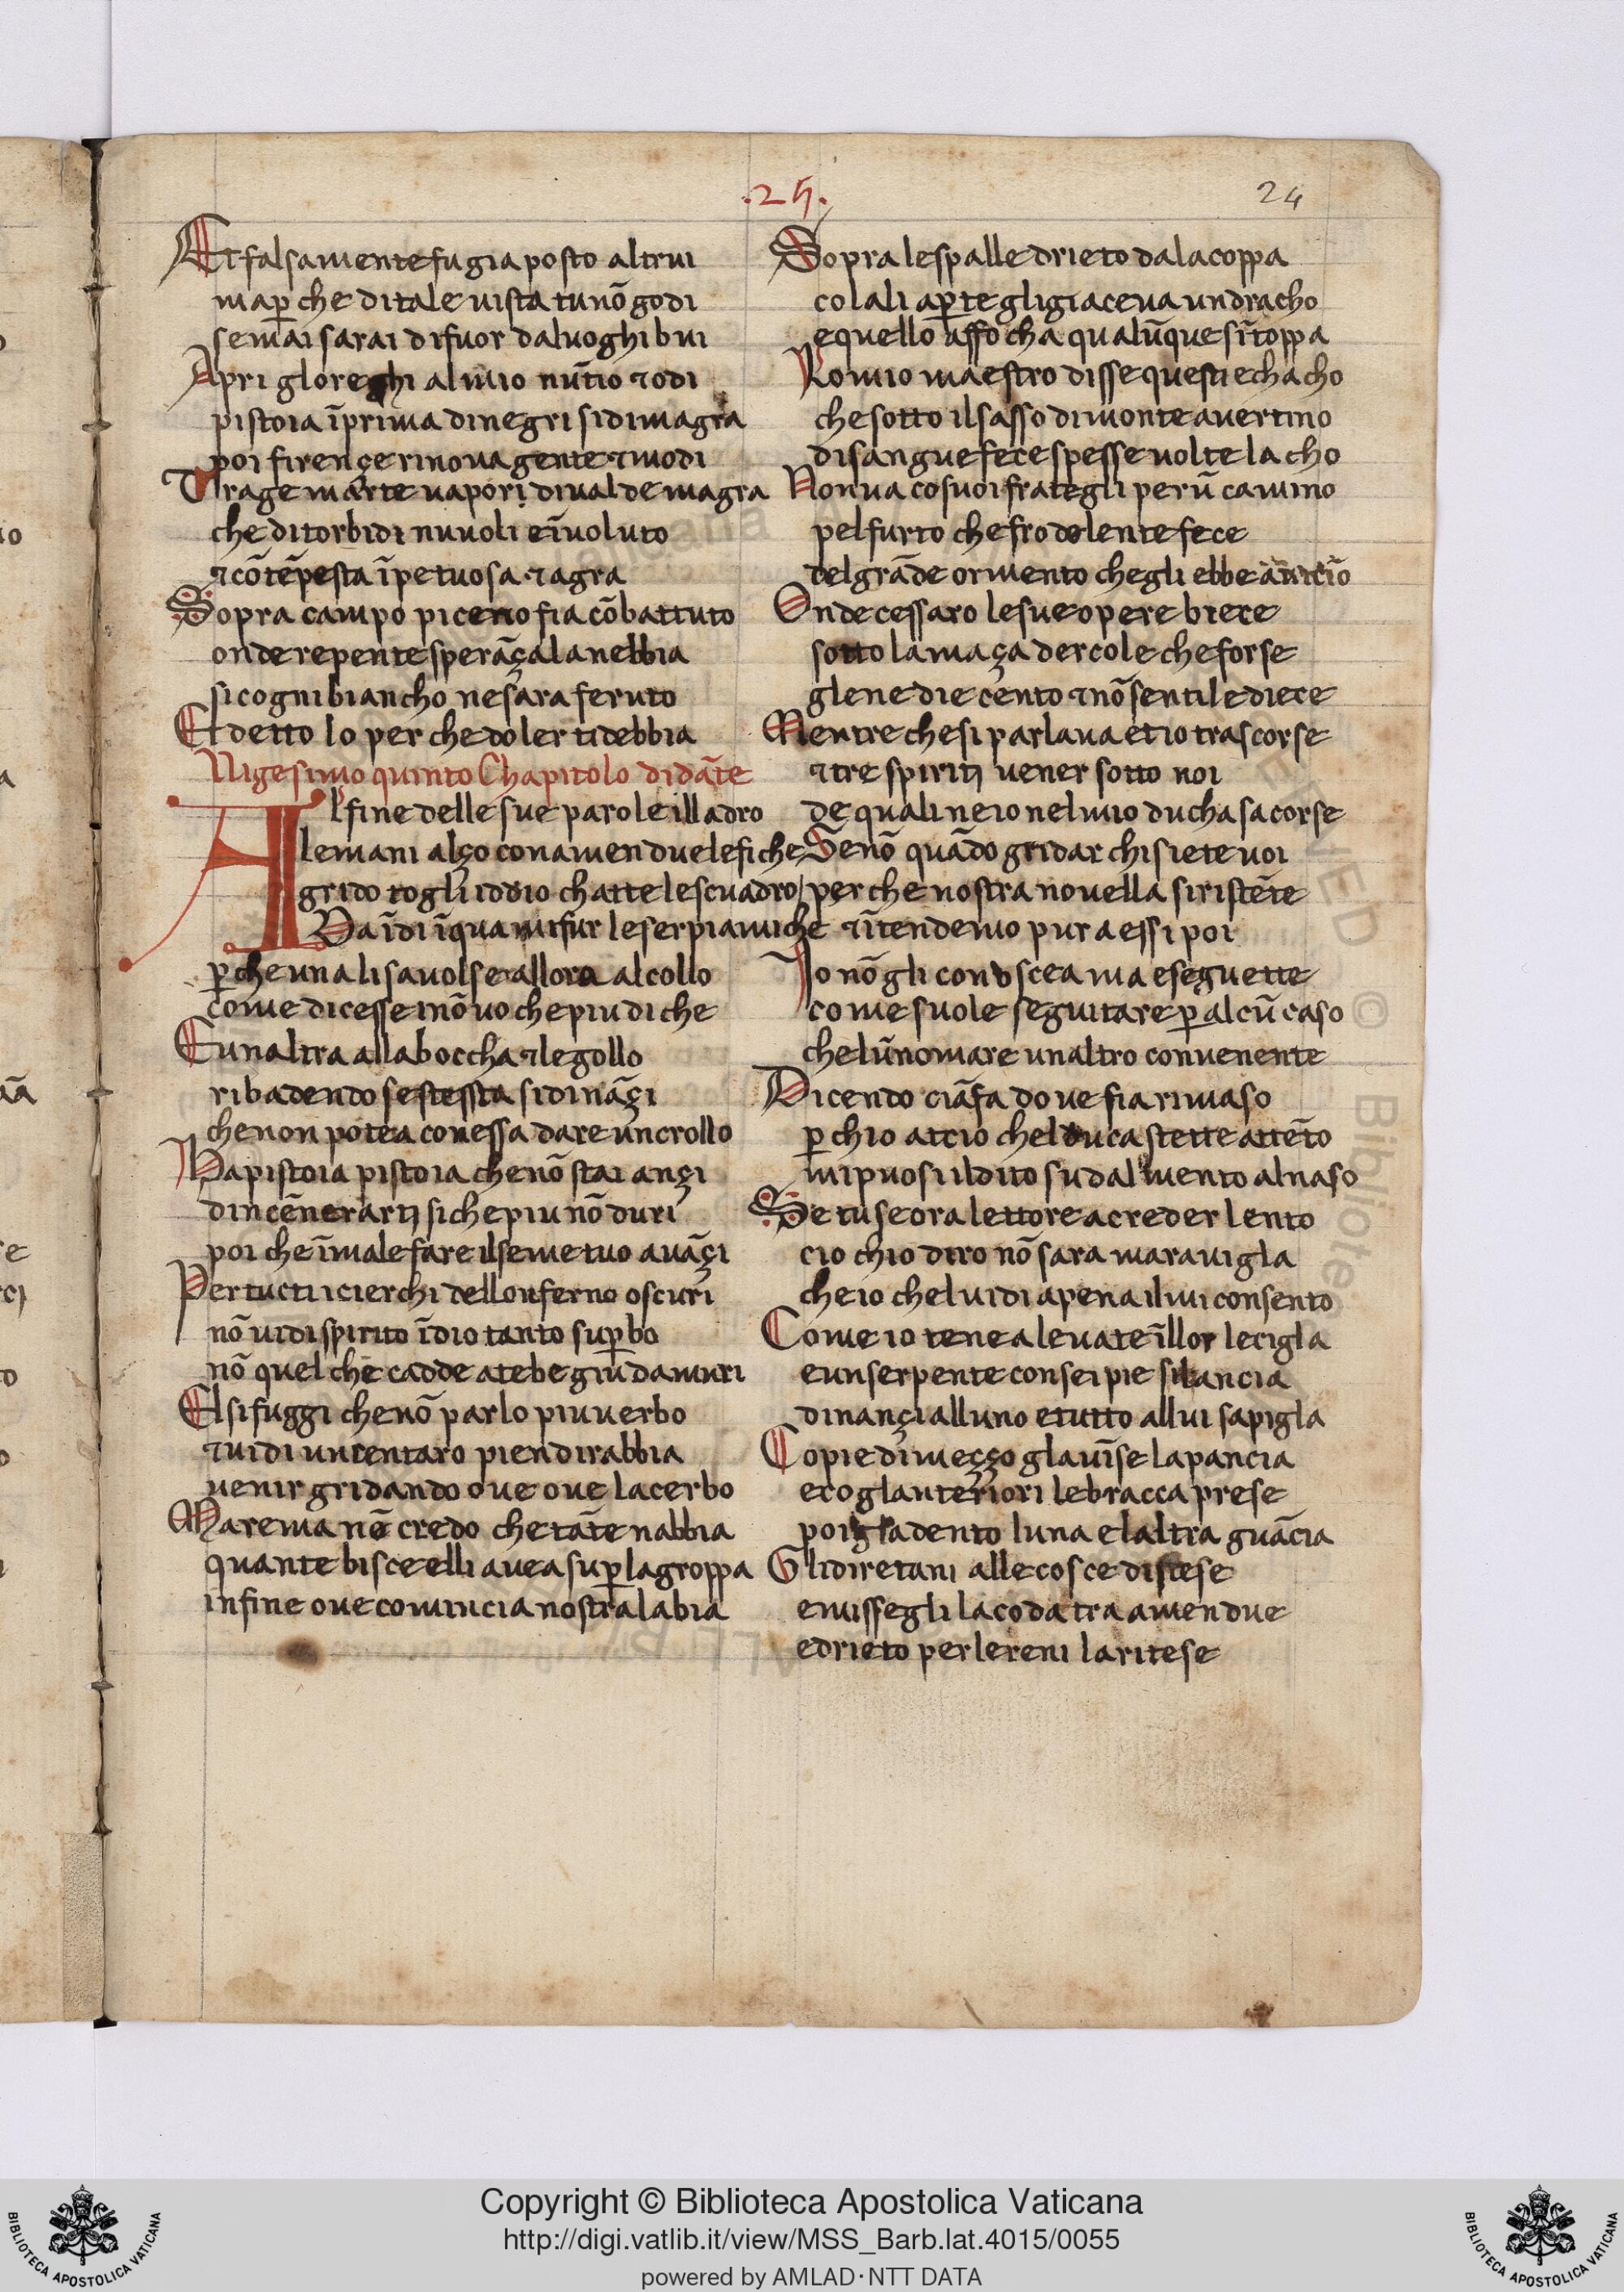 .25.
24
Et falsamente fu gia posto altrui
map̄ che ditale uista tu nō godi
semai sarai difuor daluoghi bui
Apri gloreghi almio nūtio ⁊ odi
pistoia īprima dinegri sidimagra
poi firençe rinoua gente ⁊ modi
Trage marte uapori diualdemagra
che ditorbidi nuuoli eīuoluto
⁊ cōtēpesta īpetuosa ⁊ agra
Sopra campo piceno fia cōbattuto
onde repente sperāça la nebbia
sicogni biancho ne sara feruto
Et detto lo per che doler tidebbia
Vigesimo quinto Chapitolo didāte
Al fine delle sue parole illadro
le mani alço con amendue le fiche
grido togli iddio chatte le scuadro
Da īdi īqua mi fur le serpi amiche
p̄che una lisauolse allora al collo
come dicesse inō uo che piu diche
Eunaltra alla boccha ⁊ legollo
ribadendo se stessta si dināçi
che non potea conessa dare un crollo
Ha pistoia pistoia che nō stai ançi
dincēnerarti siche piu nō duri
poi che īmale fare il seme tuo auāçi
Per tucti i cierchi dellonferno oscuri
nō uidi spirito īdio tanto sup̄bo
nō quel che cadde a tebe giu damuri
El si fuggi che nō parlo piu uerbo
⁊ uidi un centaro pien dirabbia
uenir gridando oue oue lacerbo
Marema nē credo che tāte nabbia
quante biscie elli auea sup̄ la groppa
infine oue comincia nostra labia
Sopra le spalle drieto da la coppa
colali ap̄te gli giaceua un dracho
e quello affocha qualūque sītoppa
Lo mio maestro disse questi e chacho
che sotto il sasso di monte auertino
di sangue fece spesse uolte lacho
Non ua co suoi frategli per ū camino
pel furto che frodolente fece
del grāde ormento chegli ebbe
Onde cessaro le sue opere biece
sotto la maça dercole che forse
glene die cento ⁊ nō senti le diece
Mentre che si parlaua et io trascorse
⁊ tre spiriti uener sotto noi
de quali ne io nel mio ducha sacorse
Senō quādo gridar chi siete uoi
per che nostra nouella si ristēte
⁊ ītendemo pur a essi poi
Io nō gli conoscea ma e seguette
come suole seguitare p̄ alcū caso
che lū nomare unaltro conuenente
Dicendo ciāfa doue fia rimaso
p̄ chio accio chel duca stette attēto
mi puosi il dito su dal mento al naso
Se tu se ora lettore a creder lento
cio chio diro nō sara marauigla
che io chel uidi apena il mi consento
Come io tenea leuate īllor le cigla
e un serpente con sei pie si lancia
dinançi alluno e tutto allui sapigla
Co pie di meçço glauīse la pancia
e co glanteriori le bracca prese
poi gla dento luna e laltra guācia
Gli diretani alle cosce distese
e missegli la coda tra amendue
e drieto per le reni la ritese
Copyright © Biblioteca Apostolica Vaticana
http://digi.vatlib.it/view/MSS_Barb.lat.4015/0055
powered by AMLAD·NTT DATA
BIBLIOTECA APOSTOLICA VATICANA
BIBLIOTECA APOSTOLICA VATICANA